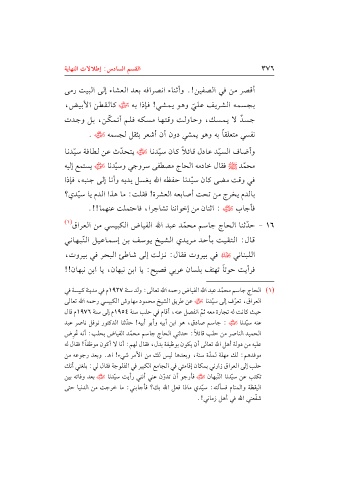 ٣٧٦
القسم السادس: إطلالات النهاية
أقصر من في الصفين!. وأثناء انصرافه بعد العشاء إلى البيت رمى
بجسمه الشريف عليّ وهو يمشي! فإذا به ﷺ كالقطن الأبيض،
جسدٌ لا يمسك، وحاولت وقتها مسكه فلم أتمكّن، بل وجدت
نفسي متعلقاً به وهو يمشي دون أن أشعر بثقل لجسمه ﷺ .
وأضاف السيّد عادل قائلاً كان سيّدنا ﷺ يتحدّث عن لطافة سيّدنا
محمّد ﷺ فقال خادمه الحاج مصطفى سروجي وسيّدنا ﷺ يستمع إليه
في وقت مضى كان سيّدنا حفظه الله يغسل يديه وأنا إلى جنبه، فإذا
بالدم يخرج من تحت أصابعه العشرة! فقلت: ما هذا الدم يا سيّدي؟
فأجاب ﷺ : اثنان من إخواننا تشاجرا، فاحتملت عنهما!!.
١٦ - حدّثنا الحاج جاسم محمّد عبد الله الفياض الكبيسي من العراق(١)
قال: التقيت بأحد مريدي الشيخ يوسف بن إسماعيل النّبهاني
اللبناني ﷺ في بيروت فقال: نزلت إلى شاطئ البحر في بيروت،
فرأيت حوتاً تهتف بلسان عربي فصيح: يا ابن نبهان، يا ابن نبهان!!
(١) الحاج جاسم محمّد عبد الله الفياض رحمه الله تعالى: ولد سنة ١٩٢٧م في مدينة كبيسة في
العراق، تعرّف إلى سيّدنا ﷺ عن طريق الشيخ محمود مهاوش الكبيسي رحمه الله تعالى
حيث كانت له تجارة معه ثمّ انفصل عنه، أقام في حلب سنة ١٩٥٤م إلى سنة ١٩٧٦م قال
عنه سيّدنا ﷺ : جاسم صادق، هو ابن أبيه وأبو أبيه! حدّثنا الدكتور نوفل ناصر عبد
الحميد الناصر من حلب قائلاً: حدثني الحاج جاسم محمّد الفياض بحلب: أنه عُرض
عليه من دولة أهل الله تعالى أن يكون بوظيفة بدل، فقال لهم: أنا لا أكون موظفاً! فقال له
موفدهم: لك مهلة لمدّة سنة، وبعدها ليس لك من الأمر شيء! اهـ. وبعد رجوعه من
حلب إلى العراق زارني بمكان إقامتي في الجامع الكبير في الفلوجة فقال لي: بلغني أنك
تكتب عن سيّدنا النّبهان ﷺ فأرجو أن تدوّن عني أنني رأيت سيّدنا ﷺ بعد وفاته بين
اليقظة والمنام فسألته: سيّدي ماذا فعل الله بك؟ فأجابني: ما خرجت من الدنيا حتى
شفّعني الله في أهل زماني!.